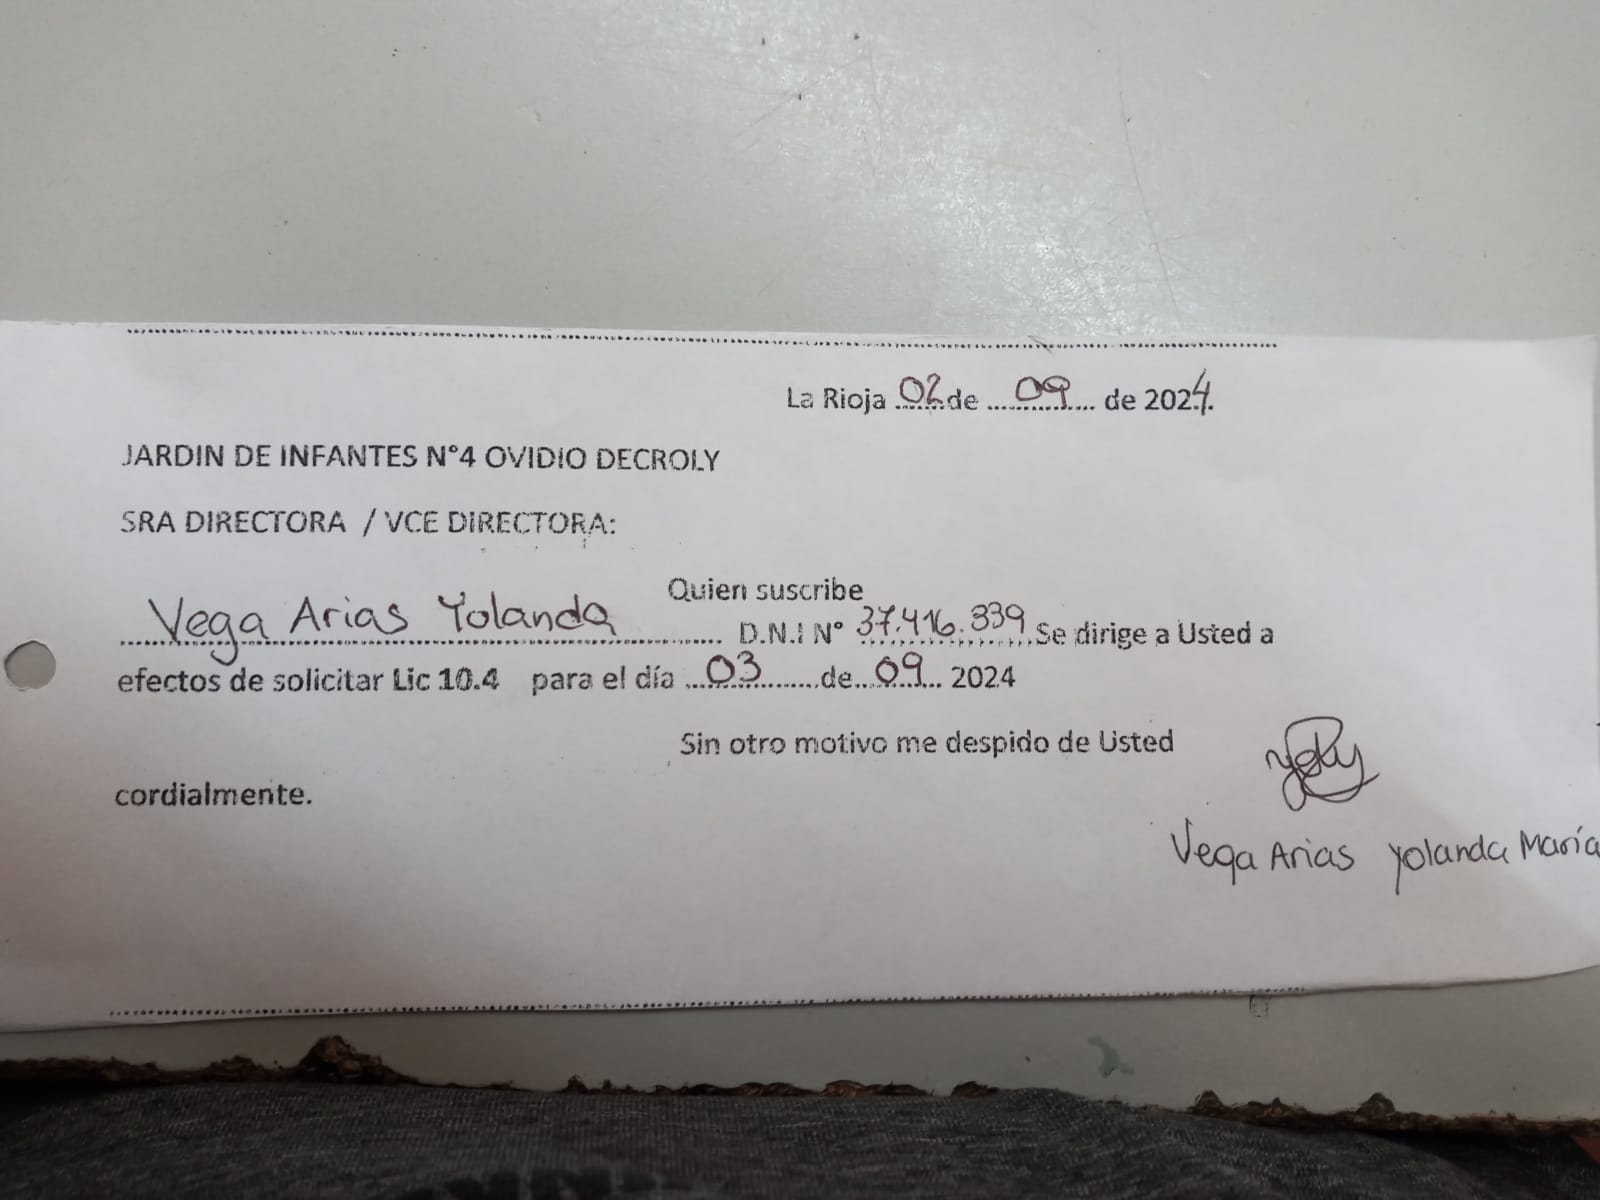 La Rioja 02 de 09 de 2024.
JARDIN DE INFANTES N°4 OVIDIO DECROLY
SRA DIRECTORA / VCE DIRECTORA:
Quien suscribe
Vega Arias Yolanda D.N.I N° 37.416.339 Se dirige a Usted a
efectos de solicitar Lic 10.4 para el día 03 de 09 2024
Sin otro motivo me despido de Usted
cordialmente.
Yoly
Vega Arias Yolanda María